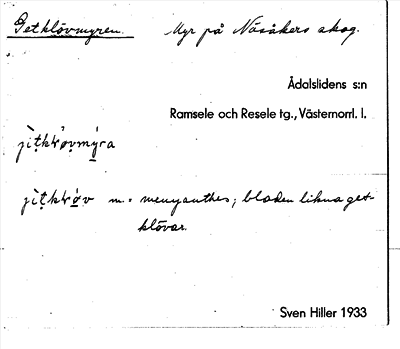 Getklövmyren. Myr på Näsåkers skog.
Ådalslidens s:n
Ramsele och Resele tg., Västernorrl. l.
m. = menyanthes; bladen likna get-
klövar.
Sven Hiller 1933